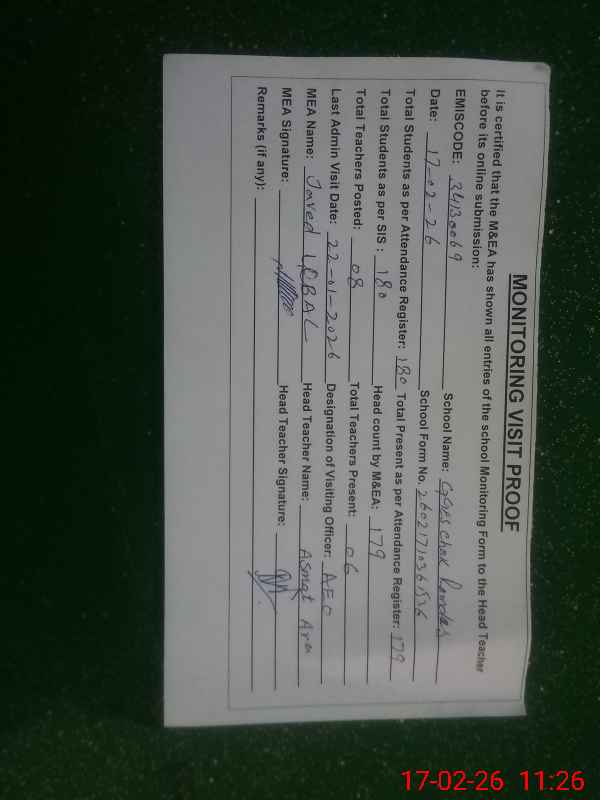 MONITORING VISIT PROOF
It is certified that the M&EA has shown all entries of the school Monitoring Form to the Head Teacher
before its online submission:
EMISCODE: 34130069 School Name: GGPS Chak
Date: 17-02-26 School Form No. 26021710361536
Total Students as per Attendance Register: 180 Total Present as per Attendance Register: 179
Total Students as per SIS : 180 Head count by M&EA: 179
Total Teachers Posted: 08 Total Teachers Present: 06
Last Admin Visit Date: 22-01-2026 Designation of Visiting Officer: AEO
MEA Name: Javed IQBAL Head Teacher Name: Asmat Ara
MEA Signature: Head Teacher Signature:
Remarks (if any):
17-02-26 11:26